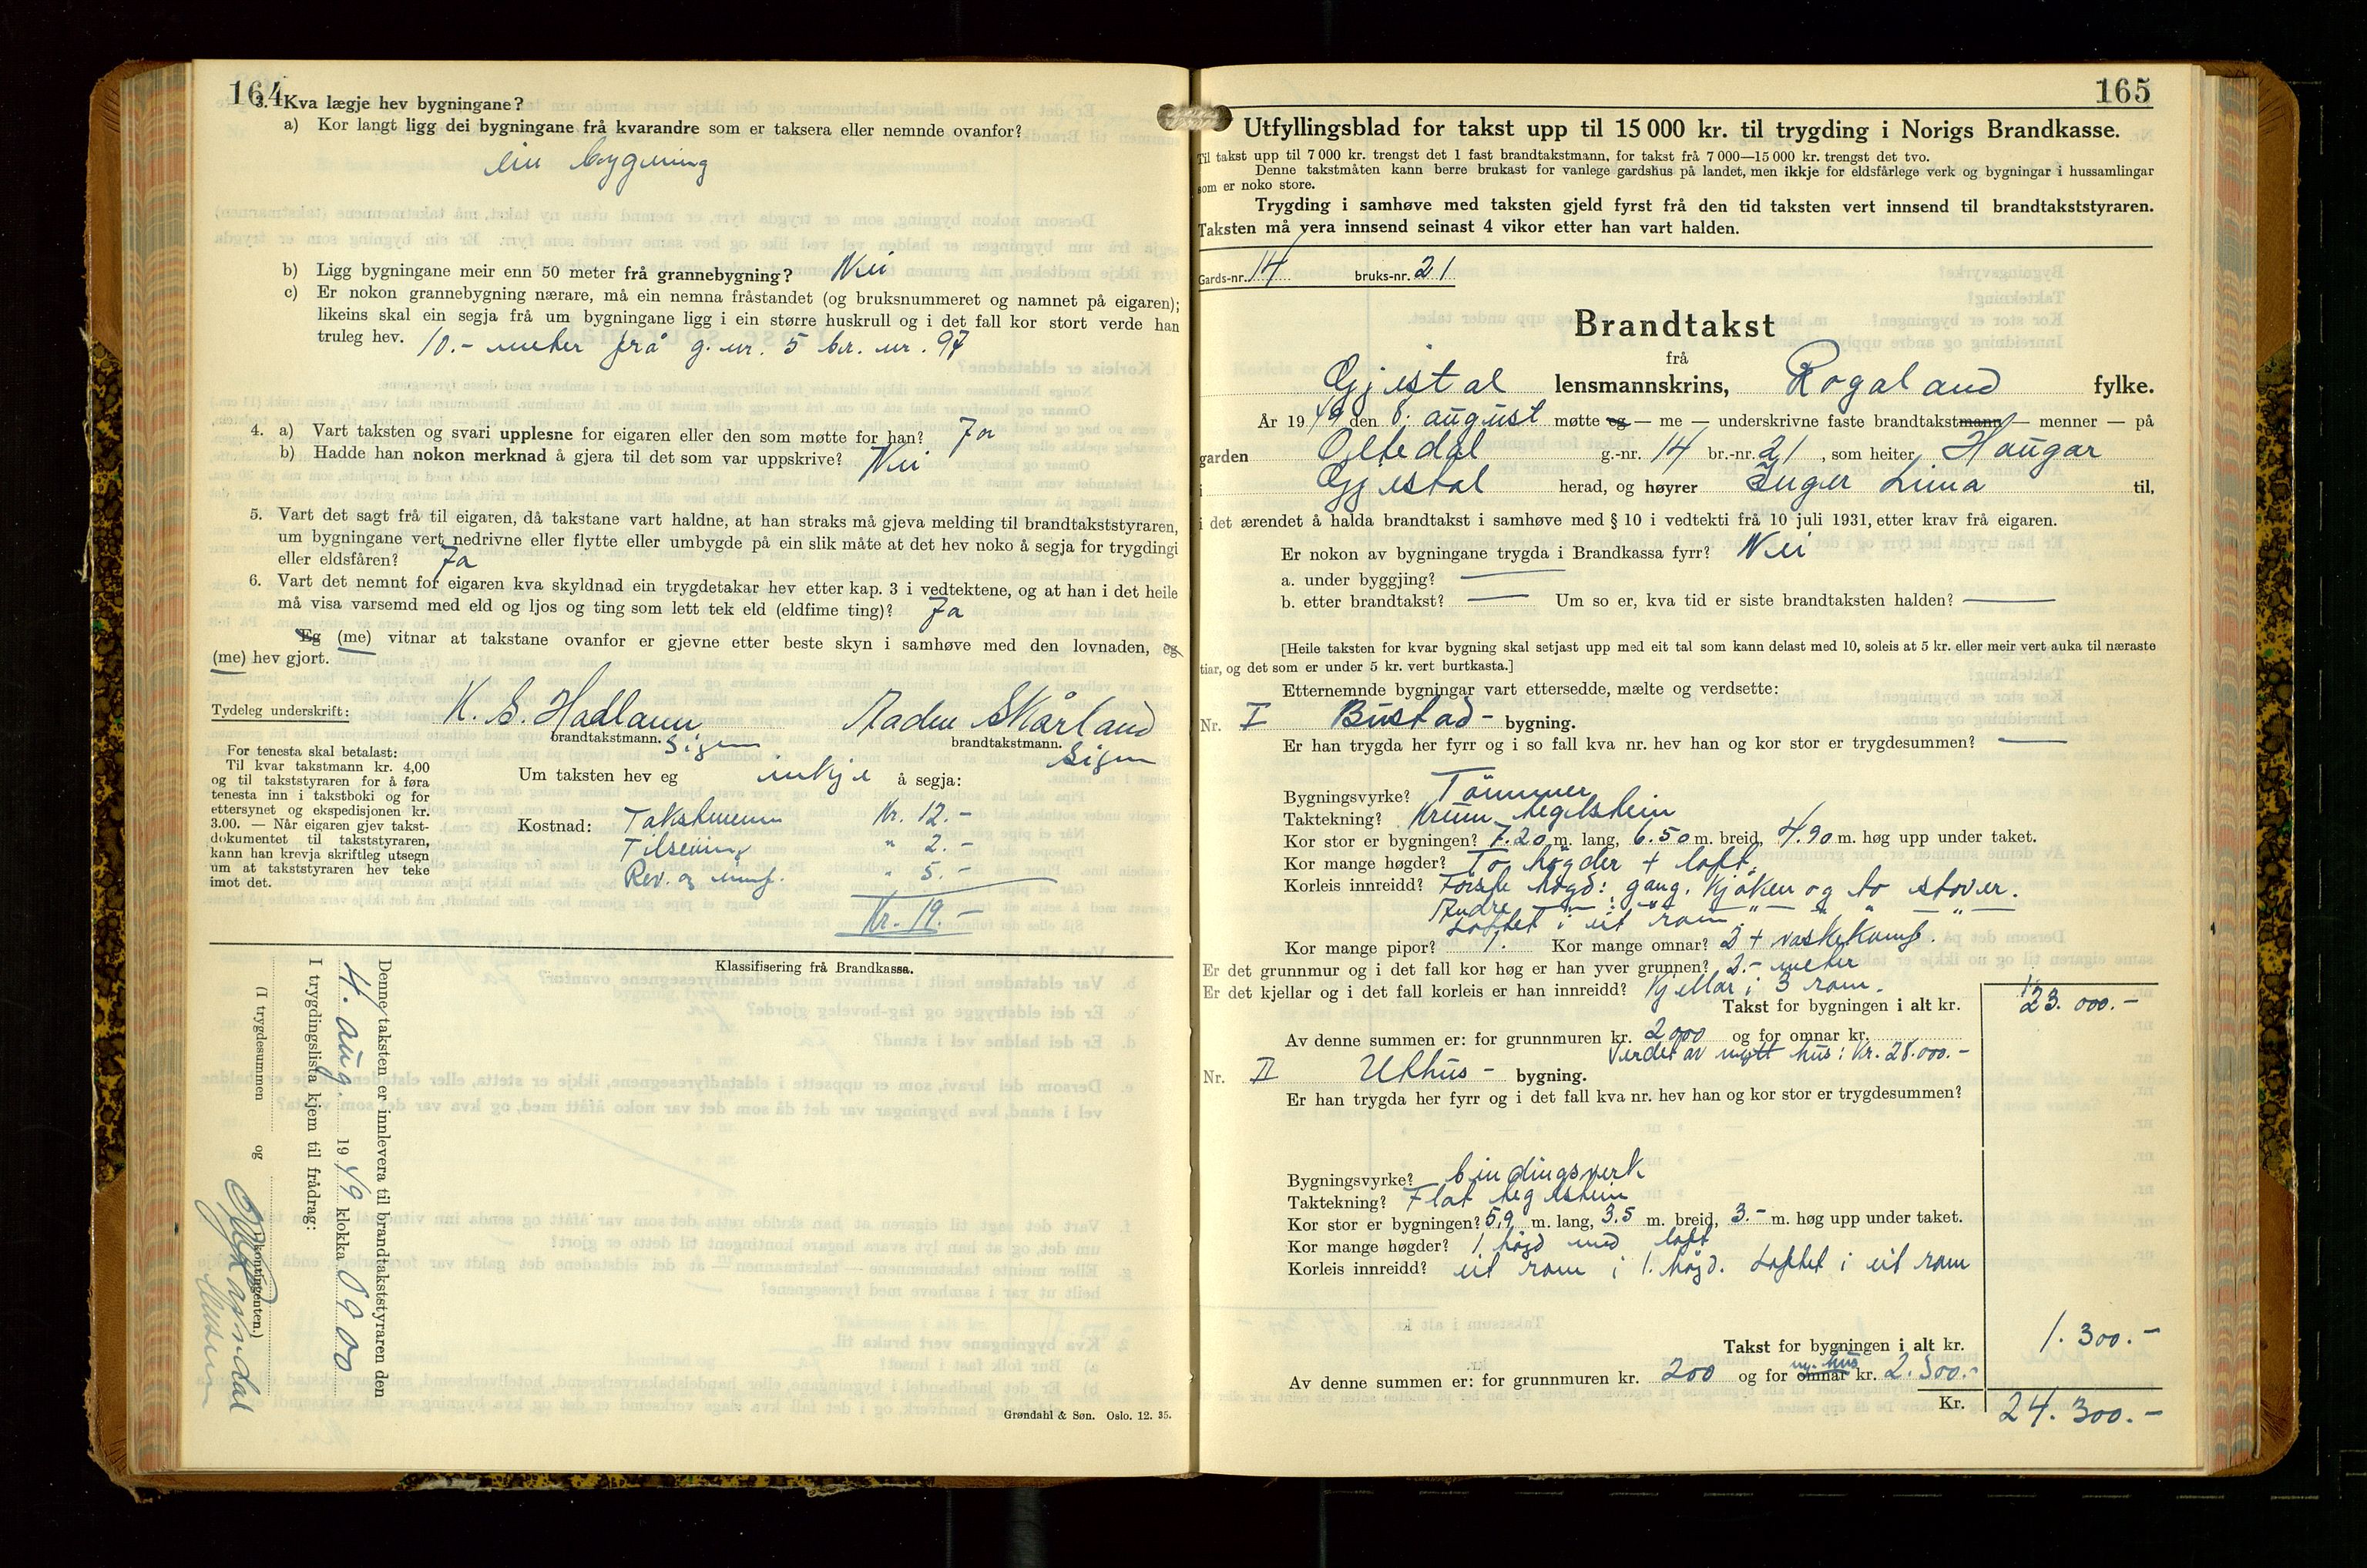 164
3. Kva lægje hev bygningane?
a) Kor langt ligg dei bygningane frå kvarandre som er taksera eller nemnde ovanfor?
ein bygning
b) Ligg bygningane meir enn 50 meter frå grannebygning? Nei
c) Er nokon grannebygning nærare, må ein nemna fråstandet (og bruksnummeret og namnet på eigaren);
likeins skal ein segja frå um bygningane ligg i ein større huskrull og i det fall kor stort verde han
truleg hev. 10.- meter frå g. nr. 5 br. nr. 97
4. a) Vart taksten og svari upplesne for eigaren eller den som møtte for han? Ja
b) Hadde han nokon merknad å gjera til det som var uppskrive? Nei
5. Vart det sagt frå til eigaren, då takstane vart haldne, at han straks må gjeva melding til brandtakststyraren,
um bygningane vert nedrivne eller flytte eller umbygde på ein slik måte at det hev noko å segja for trygdingi
eller eldsfåren? Ja
6. Vart det nemnt for eigaren kva skyldnad ein trygdetakar hev etter kap. 3 i vedtektene, og at han i det heile
må visa varsemd med eld og ljos og ting som lett tek eld (eldfime ting)? Ja
Eg (me) vitnar at takstane ovanfor er gjevne etter beste skyn i samhøve med den lovnaden, eg
(me) hev gjort.
Tydeleg underskrift: K. S. Hadlann Aadne Skårland
brandtakstmann. sign brandtakstmann. sign
For tenesta skal betalast:
Til kvar takstmann kr. 4,00
og til takststyraren for å føra
tenesta inn i takstboki og for
ettersynet og ekspedisjonen kr.
3.00. — Når eigaren gjev takst-
dokumentet til takststyraren,
kann han krevja skriftleg utsegn
um at takststyraren hev teke
imot det.
Um taksten hev eg inkje å segja:
Kostnad: Takstmenn Kr. 12.-
" 2.-
Rev. og innf. " 5.-
Kr. 19.-
Klassifisering frå Brandkassa.
Denne taksten er innlevera til brandtakststyraren den
4. aug. 1949 klokka 0900
I trygdingslista kjem til frådrag:
(I trygdesummen og kontingenten.)
Grøndahl & Søn. Oslo. 12. 35.
165
Utfyllingsblad for takst upp til 15 000 kr. til trygding i Norigs Brandkasse.
Til takst upp til 7 000 kr. trengst det 1 fast brandtakstmann, for takst frå 7 000—15 000 kr. trengst det tvo.
Denne takstmåten kann berre brukast for vanlege gardshus på landet, men ikkje for eldsfårlege verk og bygningar i hussamlingar
som er noko store.
Trygding i samhøve med taksten gjeld fyrst frå den tid taksten vert innsend til brandtakststyraren.
Taksten må vera innsend seinast 4 vikor etter han vart halden.
Gards-nr. 14 bruks-nr. 21
Brandtakst
frå
Gjestal lensmannskrins, Rogaland fylke.
År 1949 den 8. august møtte eg — me — underskrivne faste brandtakstmann — menner — på
garden Oltedal g.-nr. 14 br.-nr. 21, som heiter Haugar
i Gjestal herad, og høyrer Inger Lima til,
i det ærendet å halda brandtakst i samhøve med § 10 i vedtekti frå 10 juli 1931, etter krav frå eigaren.
Er nokon av bygningane trygda i Brandkassa fyrr? Nei
a. under byggjing? —
b. etter brandtakst? — Um so er, kva tid er siste brandtaksten halden? —
[Heile taksten for kvar bygning skal setjast upp med eit tal som kann delast med 10, soleis at 5 kr. eller meir vert auka til næraste
tiar, og det som er under 5 kr. vert burtkasta.]
Etternemnde bygningar vart ettersedde, mælte og verdsette:
Nr. I Bustad- bygning.
Er han trygda her fyrr og i so fall kva nr. hev han og kor stor er trygdesummen? —
Bygningsvyrke? Tömmer
Taktekning? Krum teglstein
Kor stor er bygningen? 7.20 m. lang, 6.50 m. breid, 4.90 m. høg upp under taket.
Kor mange høgder? To högder + loft.
Korleis innreidd? Förste högd: gang, kjöken og to stover.
Andre — " — : " — " " — " —
Loftet i eit rom
Kor mange pipor? 1. Kor mange omnar? 2 + vaskekomf.
Er det grunnmur og i det fall kor høg er han yver grunnen? 2.- meter
Er det kjellar og i det fall korleis er han innreidd? Kjellar i 3 rom.
Takst for bygningen i alt kr. 23.000.-
Av denne summen er: for grunnmuren kr. 2000 og for omnar kr.
Verdet av nytt hus: Kr. 28.000.-
Nr. II Uthus- bygning.
Er han trygda her fyrr og i det fall kva nr. hev han og kor stor er trygdesummen?
Bygningsvyrke? bindingsverk
Taktekning? Flat teglstein
Kor stor er bygningen? 5,9 m. lang, 3.5 m. breid, 3.- m. høg upp under taket.
Kor mange høgder? 1 högd med loft
Korleis innreidd? eit rom i 1. högd. Loftet i eit rom
Takst for bygningen i alt kr. 1.300.-
Av denne summen er: for grunnmuren kr. 200 og for omnar ny. hus kr. 2.500.-
Kr. 24.300.-